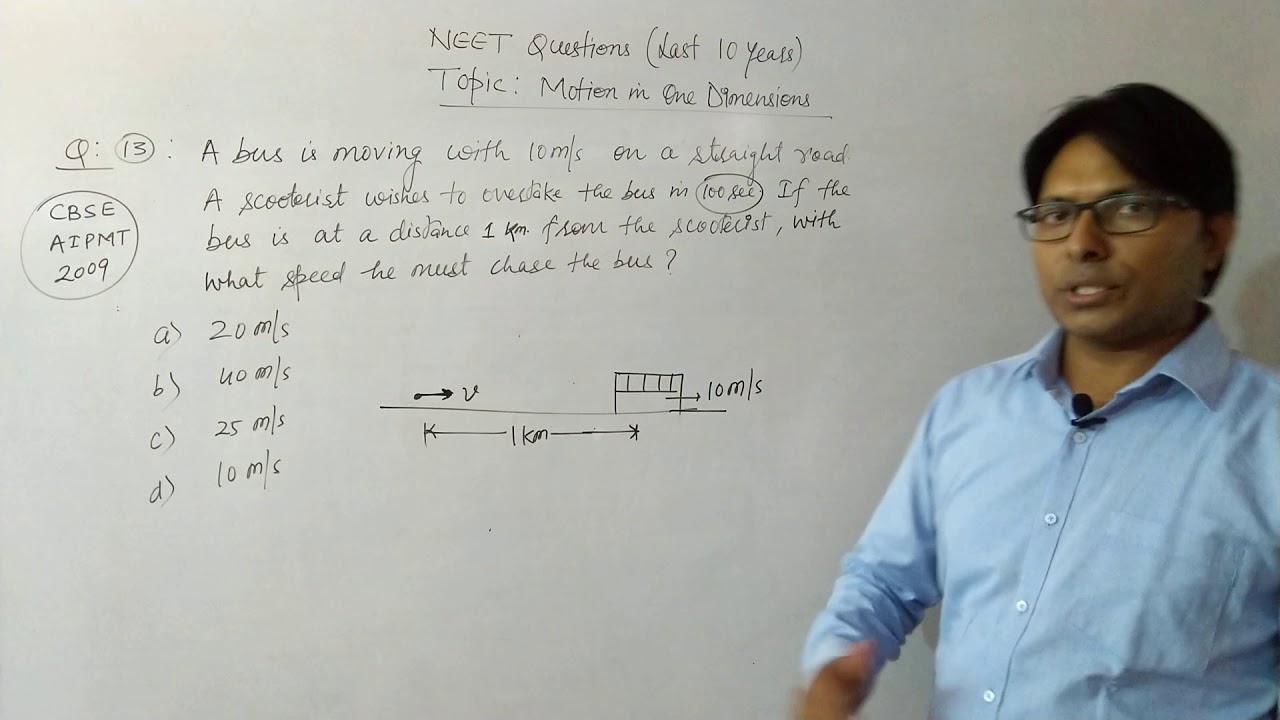 NEET Questions (Last 10 Years)
Topic: Motion in One Dimensions
Q: 13 : A bus is moving with 10m/s on a straight road.
A scooterist wishes to overtake the bus in 100sec If the
bus is at a distance 1 km. from the scooterist, with
what speed he must chase the bus ?
CBSE
AIPMT
2009
a) 20 m/s
b) 40 m/s
c) 25 m/s
d) 10 m/s
v
10m/s
1km